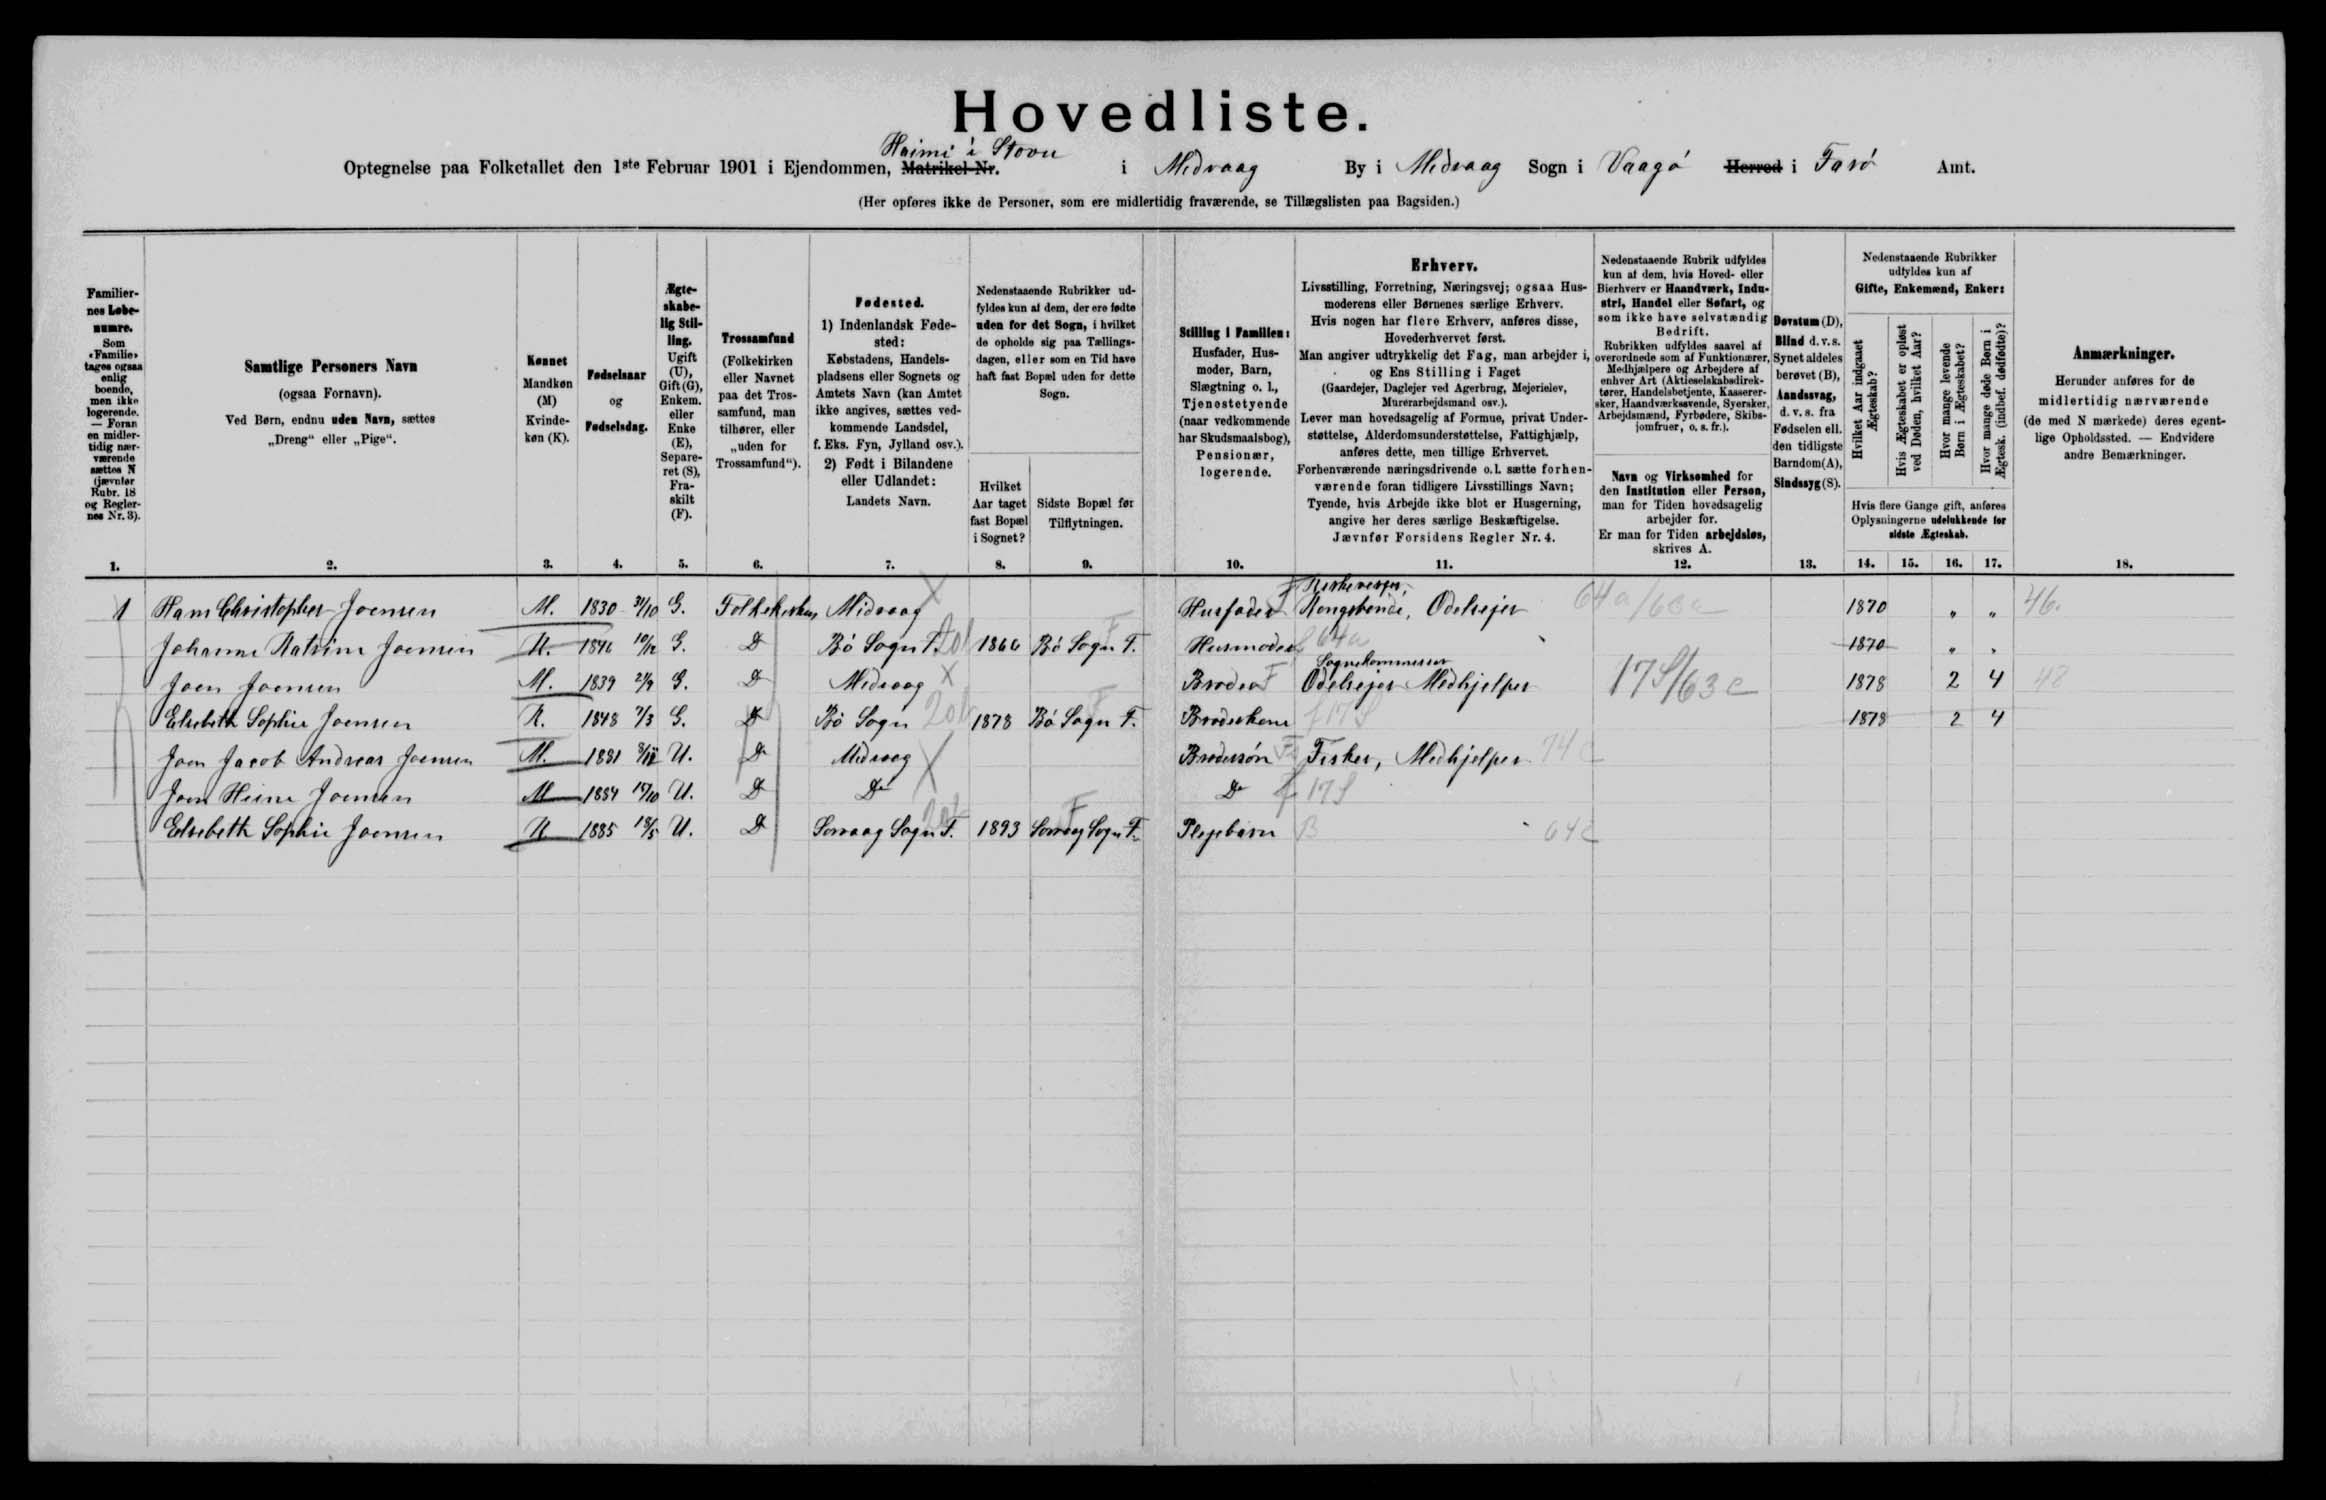 Hovedliste.
Heimi i Stovu
Optegnelse paa Folketallet den 1ste Februar 1901 i Ejendommen, Matrikel-Nr. i Midvaag By i Midvaag Sogn i Vaagø Herred i Farø Amt.
(Her opføres ikke de Personer, som ere midlertidig fraværende, se Tillægslisten paa Bagsiden.)
Familiernes Løbenumre.
Som «Familie» tages ogsaa enlig boende, men ikke logerende. — Foran en midlertidig nærværende sættes N (jævnfør Rubr. 18 og Reglernes Nr. 3).
1.
Samtlige Personers Navn
(ogsaa Fornavn).
Ved Børn, endnu uden Navn, sættes
„Dreng“ eller „Pige“.
2.
Kønnet
Mandkøn (M)
Kvindekøn (K).
3.
Fødselsaar
og
Fødselsdag.
4.
Ægteskabelig Stilling.
Ugift (U), Gift (G), Enkem. eller Enke (E), Separeret (S), Fraskilt (F).
5.
Trossamfund
(Folkekirken eller Navnet paa det Trossamfund, man tilhører, eller „uden for Trossamfund“).
6.
Fødested.
1) Indenlandsk Fødested:
Købstadens, Handelspladsens eller Sognets og Amtets Navn (kan Amtet ikke angives, sættes vedkommende Landsdel, f. Eks. Fyn, Jylland osv.).
2) Født i Bilandene eller Udlandet:
Landets Navn.
7.
Nedenstaaende Rubrikker udfyldes kun af dem, der ere fødte uden for det Sogn, i hvilket de opholde sig paa Tællingsdagen, eller som en Tid have haft fast Bopæl uden for dette Sogn.
Hvilket Aar taget fast Bopæl i Sognet?
8.
Sidste Bopæl før Tilflytningen.
9.
Stilling i Familien:
Husfader, Husmoder, Barn, Slægtning o. l., Tjenestetyende (naar vedkommende har Skudsmaalsbog), Pensionær, logerende.
10.
Erhverv.
Livsstilling, Forretning, Næringsvej; ogsaa Husmoderens eller Børnenes særlige Erhverv.
Hvis nogen har flere Erhverv, anføres disse, Hovederhvervet først.
Man angiver udtrykkelig det Fag, man arbejder i, og Ens Stilling i Faget
(Gaardejer, Daglejer ved Agerbrug, Mejerielev, Murerarbejdsmand osv.).
Lever man hovedsagelig af Formue, privat Understøttelse, Alderdomsunderstøttelse, Fattighjælp, anføres dette, men tillige Erhvervet.
Forhenværende næringsdrivende o.l. sætte forhenværende foran tidligere Livsstillings Navn;
Tyende, hvis Arbejde ikke blot er Husgerning, angive her deres særlige Beskæftigelse.
Jævnfør Forsidens Regler Nr. 4.
11.
Nedenstaaende Rubrik udfyldes kun af dem, hvis Hoved- eller Bierhverv er Haandværk, Industri, Handel eller Søfart, og som ikke have selvstændig Bedrift.
Rubrikken udfyldes saavel af overordnede som af Funktionærer, Medhjælpere og Arbejdere af enhver Art (Aktieselskabsdirektører, Handelsbetjente, Kasserersker, Haandværkssvende, Syersker, Arbejdsmænd, Fyrbødere, Skibsjomfruer, o. s. fr.).
Navn og Virksomhed for den Institution eller Person, man for Tiden hovedsagelig arbejder for.
Er man for Tiden arbejdsløs, skrives A.
12.
Døvstum (D), Blind d. v. s. Synet aldeles berøvet (B), Aandssvag, d. v. s. fra Fødselen ell. den tidligste Barndom (A), Sindssyg (S).
13.
Nedenstaaende Rubrikker udfyldes kun af
Gifte, Enkemænd, Enker:
Hvilket Aar indgaaet Ægteskab?
Hvis Ægteskabet er opløst ved Døden, hvilket Aar?
Hvor mange levende Børn i Ægteskabet?
Hvor mange døde Børn i Ægtesk. (indbef. dødfødte)?
Hvis flere Gange gift, anføres Oplysningerne udelukkende for sidste Ægteskab.
14. 15. 16. 17.
Anmærkninger.
Herunder anføres for de midlertidig nærværende (de med N mærkede) deres egentlige Opholdssted. — Endvidere andre Bemærkninger.
18.
Kirkeværger,
1 Hans Christopher Joensen M. 1830 31/10 G. Folkekirken Midvaag Husfader Kongsbonde, Odelsejer 64a/63a 1870 „ „ 46.
Johanne Katrine Joensen K. 1846 10/12 G. Do Bø Sogn F. 1866 Bø Sogn F. Husmoder 64a 1870 „ „
Joen Joensen M. 1839 2/9 G. Do Midvaag Broder F Odelsejer Medhjelper 17S/63c 1878 2 4 42
Elsebeth Sophie Joensen K. 1848 7/3 G. Do Bø Sogn 1878 Bø Sogn F. Broderkone f 17S 1878 2 4
Joen Jacob Andreas Joensen M. 1881 U. Do Midvaag Brodersøn Fisker, Medhjelper 74c
Joen Heine Joensen M 1884 17/10 U. Do Do Do f 17S
Elsebeth Sophie Joensen K 1885 18/5 U. Do Sorvaag Sogn F. 1893 Sorvaag Sogn F. Plejebarn B 64c